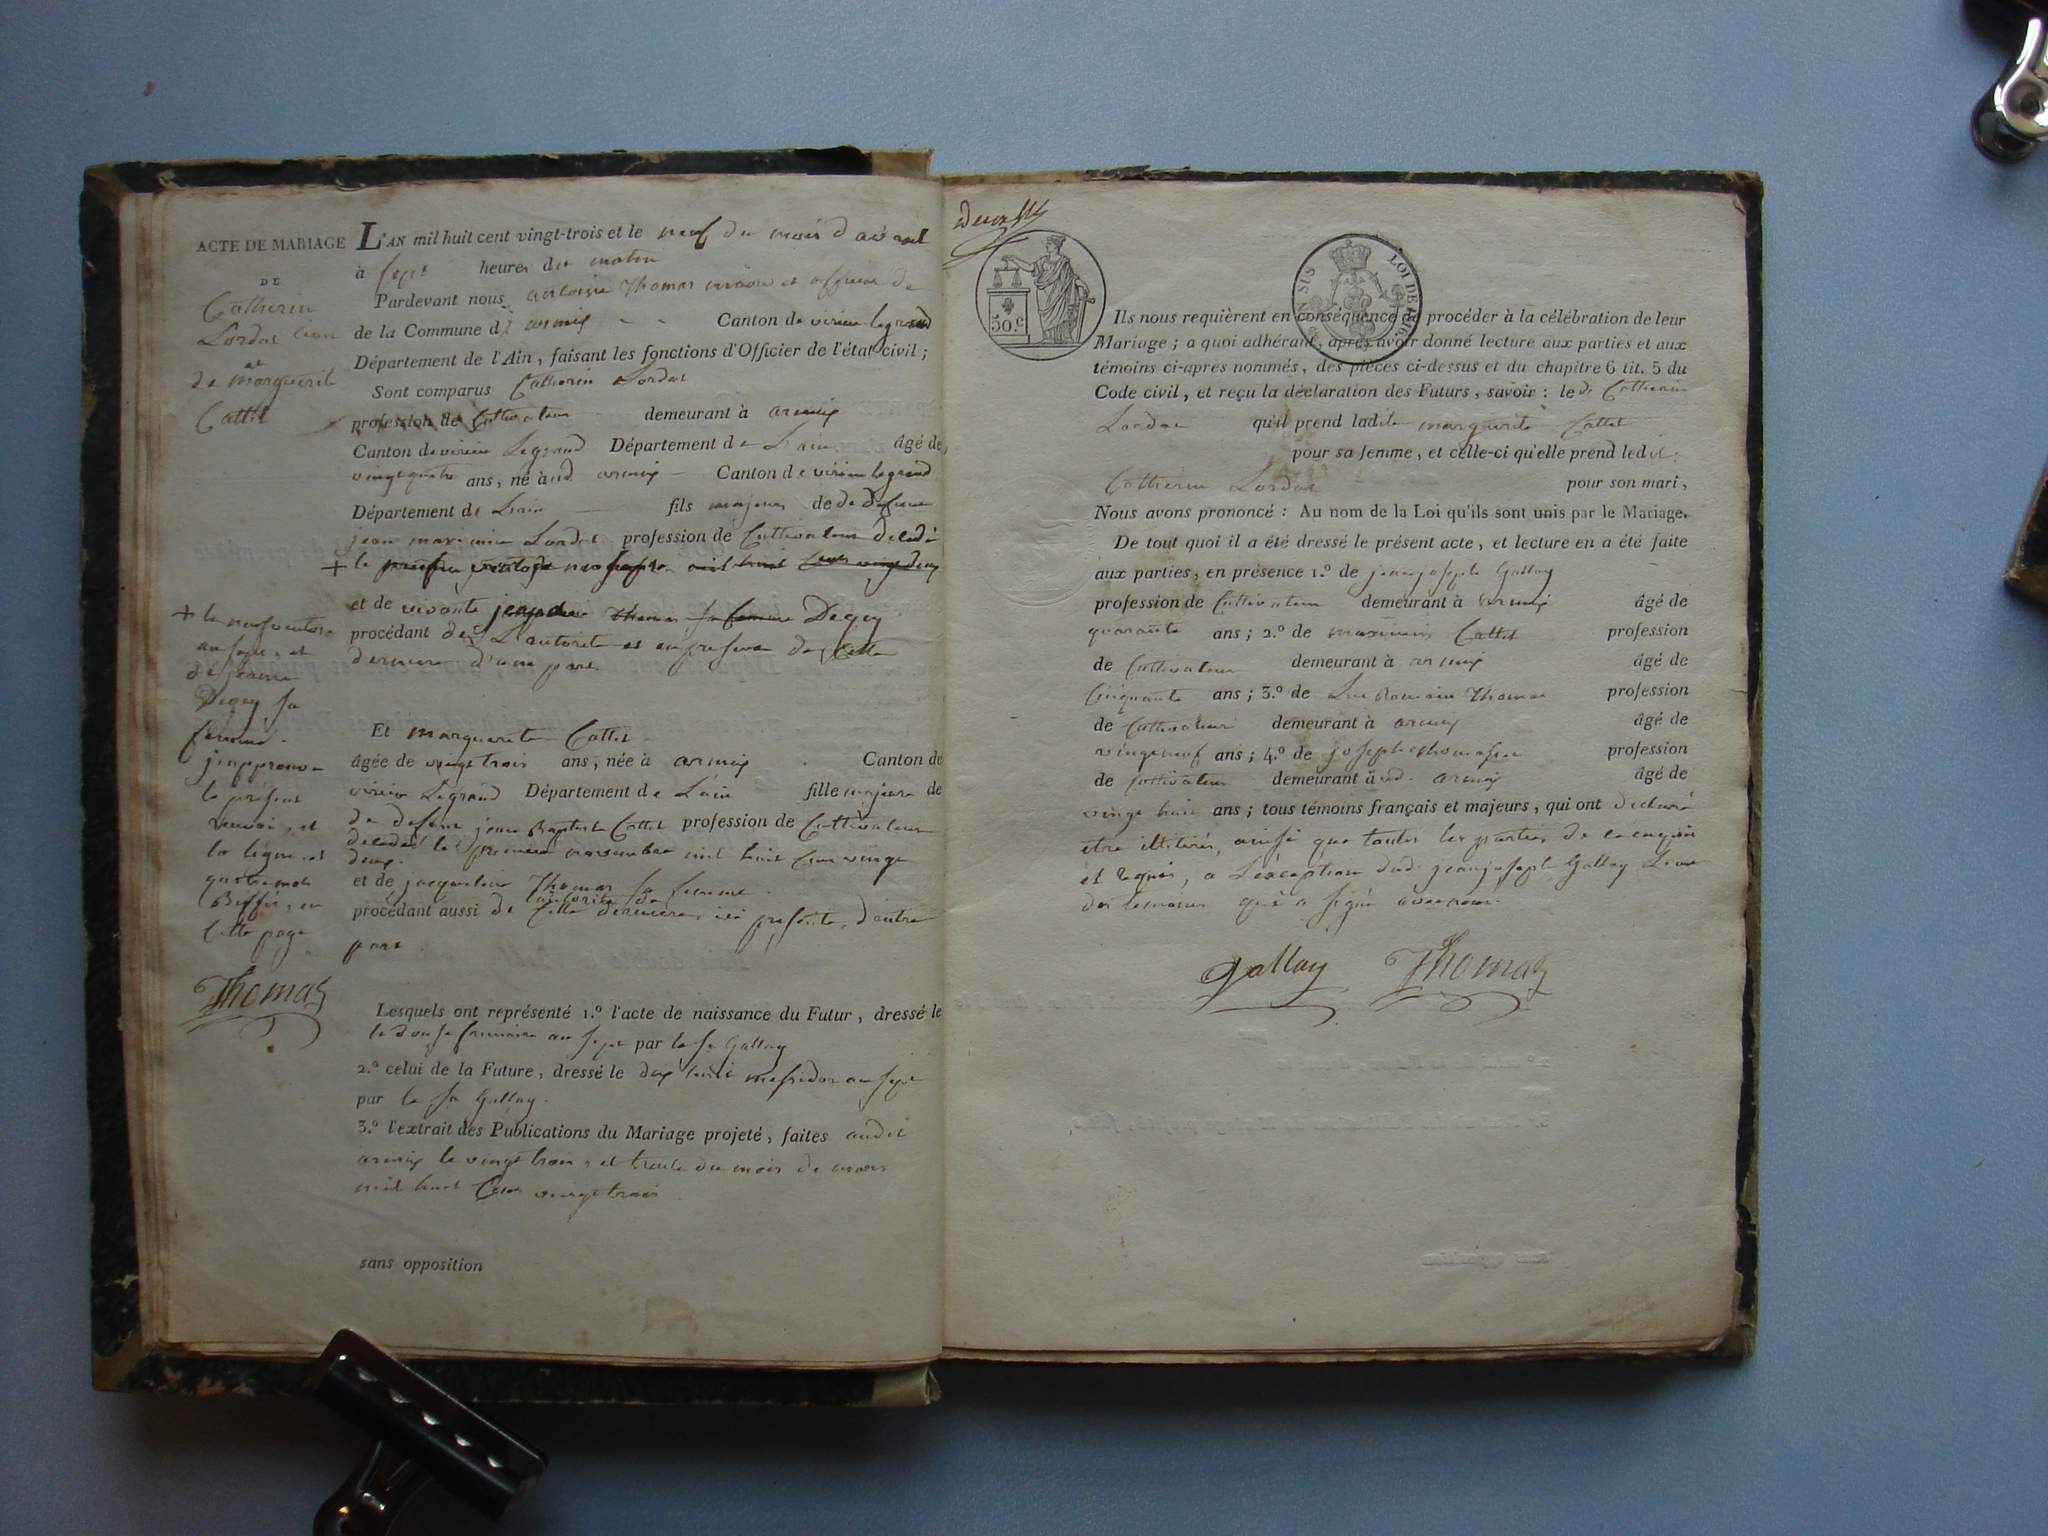 ACTE DE MARIAGE
DE
Catherin
Lordat
et
de marguerite
Cattet
L'AN mil huit cent vingt-trois et le neuf du mois d'avril
à sept heures du matin
Pardevant nous antoine Thomas maire et officier de
de la Commune d'armix Canton de virieu legrand
Département de l'Ain, faisant les fonctions d'Officier de l'état civil;
Sont comparus Catherin Lordat
profession de Cultivateur demeurant à armix
Canton de virieu Legrand Département de L'ain âgé de
vingtquatre ans, né aud. armix Canton de virieu legrand
Département de L'ain fils majeur de de défunt
jean maximin Lordat profession de Cultivateur décédé
+ le mil huit Cent vingt deux
et de vivante Thomas sa femme Degey
procédant de L'autorité et en présence de Cette
dernière d'une part.
+ le neuf ventose
an sept, et
de
Degey sa
femme.
j'approuve
le présent
renvoi, et
la ligne et
quatre mots
Biffés, en
Cette page
Thomas
Et marguerite Cattet
âgée de vingt trois ans, née à armix Canton de
virieu Legrand Département de L'ain fille majeure de
de défunt jean Baptiste Cattet profession de Cultivateur
décédé le premier novembre mil huit Cent vingt
deux.
et de jacqueline Thomas sa femme.
procédant aussi de l'autorité de Cette dernière, ici présente, d'autre
part.
Lesquels ont représenté 1.º l'acte de naissance du Futur, dressé le
le douze frimaire an sept par le sr Gallay
2.º celui de la Future, dressé le dix huit messidor an sept
par le sr Gallay.
3.º l'extrait des Publications du Mariage projeté, faites audit
armix le vingt trois, et trente du mois de mars
mil huit Cent vingt trois.
sans opposition
50.c
EN SUS
LOI DE 1816.
Ils nous requièrent en conséquence de procéder à la célébration de leur
Mariage; a quoi adhérant, après avoir donné lecture aux parties et aux
témoins ci-après nommés, des pièces ci-dessus et du chapitre 6 tit. 5 du
Code civil, et reçu la déclaration des Futurs, savoir: le d. Catherin
Lordat qu'il prend ladite marguerite Cattet
pour sa femme, et celle-ci qu'elle prend ledit
Catherin Lordat pour son mari,
Nous avons prononcé: Au nom de la Loi qu'ils sont unis par le Mariage.
De tout quoi il a été dressé le présent acte, et lecture en a été faite
aux parties, en présence 1.º de jean joseph Gallay
profession de Cultivateur demeurant à armix âgé de
quarante ans; 2.º de maximin Cattet profession
de Cultivateur demeurant à armix âgé de
Cinquante ans; 3.º de Luc Romain Thomas profession
de Cultivateur demeurant à armix âgé de
vingtneuf ans; 4.º de joseph profession
de Cultivateur demeurant aud. armix âgé de
vingt huit ans; tous témoins français et majeurs, qui ont déclaré
etre illitérés, ainsi que toutes les parties de ce enquis
et Requis, a L'exception dud. jean joseph Gallay L'un
des témoins qui a signé avec nous.
Gallay Thomas